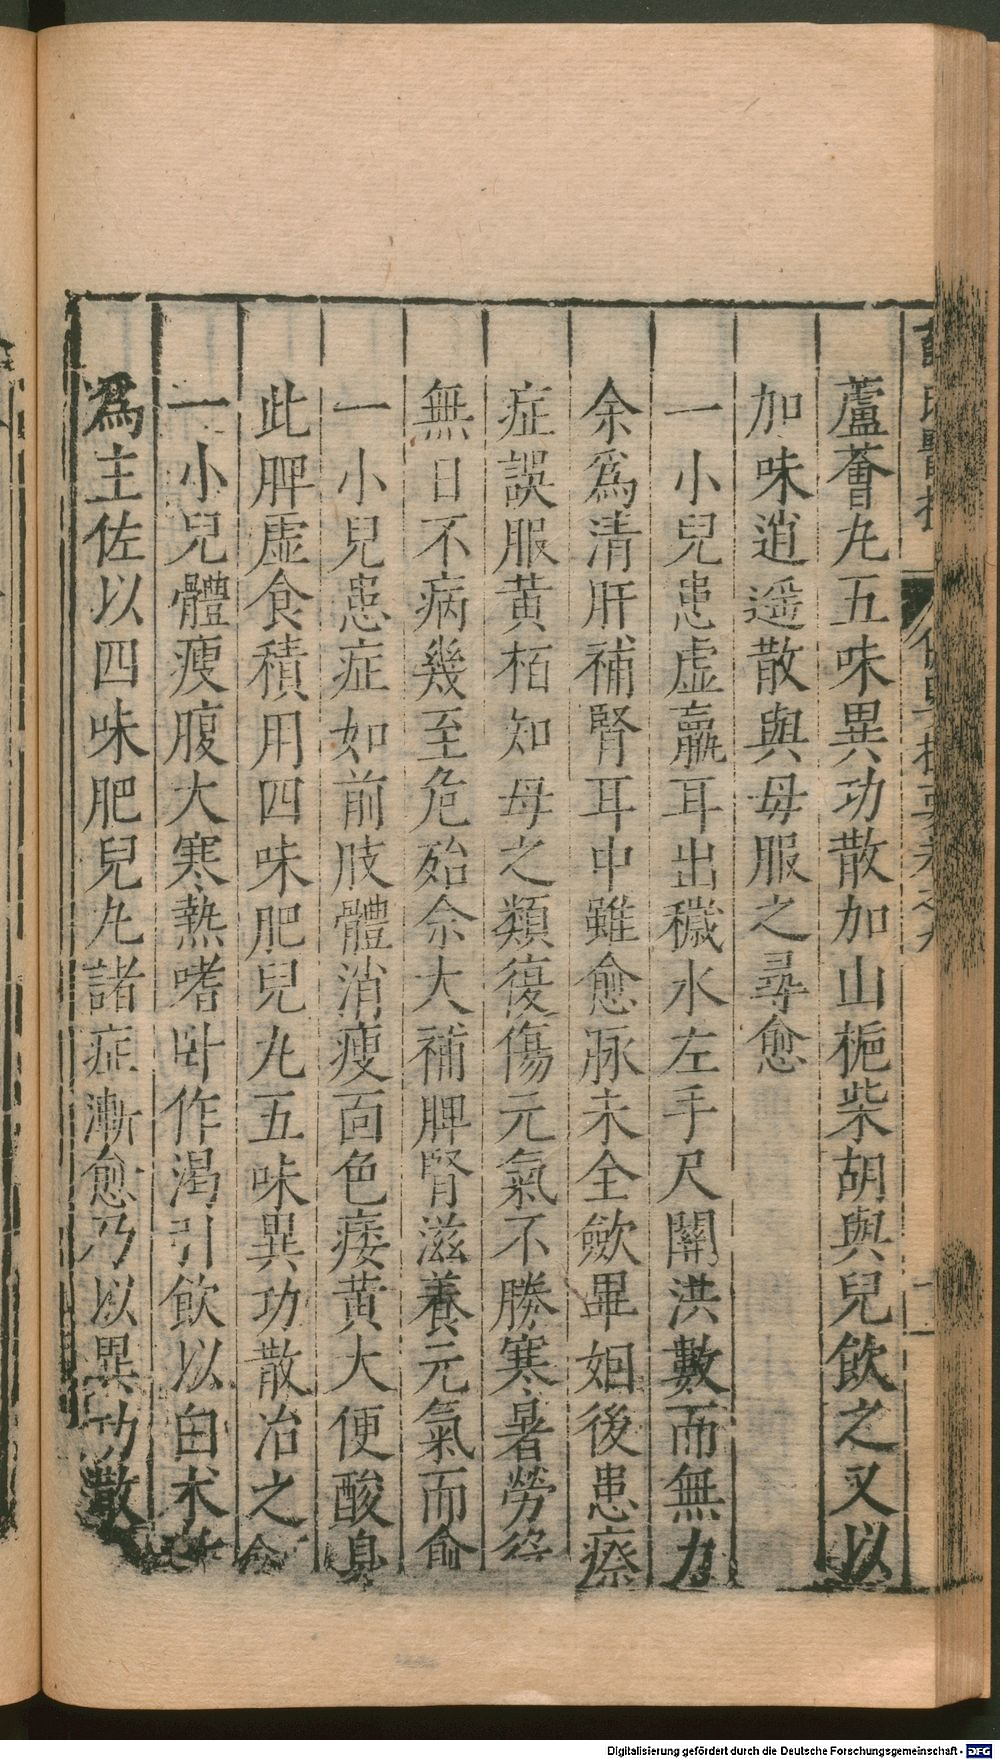 蘆薈丸五味異功散加山梔柴胡與兒飲之又以
加味逍遥散與母服之尋愈
一小兒患虚羸耳出穢水左手尺關洪數而無力
余爲清肝補腎耳中雖愈脉未全斂畢姻後患瘵
症誤服黄栢知母之類復傷元氣不勝寒暑勞役
無日不病幾至危殆余大補脾腎滋養元氣而愈
一小兒患症如前肢體消瘦面色痿黄大便酸臭
此脾虚食積用四味肥兒丸五味異功散治之愈
一小兒體瘦腹大寒熱嗜卧作渴引飲以白术
爲主佐以四味肥兒丸諸症漸愈乃以異功散
Digitalisierung gefördert durch die Deutsche Forschungsgemeinschaft - DFG